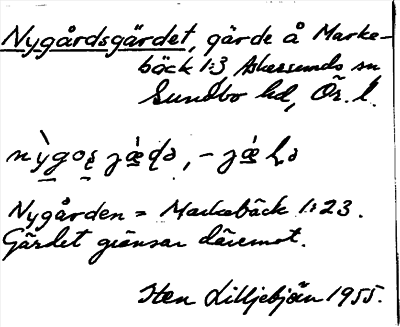 Nygårdsgärdet, gärde å Marke-
bäck 1:3, Askersunds sn
Sundbo hd, Ör. l.
Nygården = Markebäck 1:23.
Gärdet gränsar däremot.
Sten Lilljebjörn 1955.